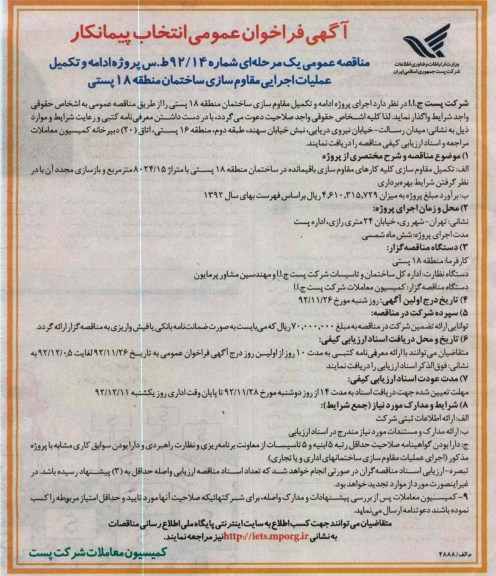 وزارت ارتباطات و فناوری اطلاعات
شرکت پست جمهوری اسلامی ایران
آگهی فراخوان عمومی انتخاب پیمانکار
مناقصه عمومی یک مرحله‌ای شماره ۹۲/۱۴ط.س پروژه ادامه و تکمیل
عملیات اجرایی مقاوم سازی ساختمان منطقه ۱۸ پستی
شرکت پست ج.ا.ا در نظر دارد اجرای پروژه ادامه و تکمیل مقاوم سازی ساختمان منطقه ۱۸ پستی را از طریق مناقصه عمومی به اشخاص حقوقی
واجد شرایط واگذار نماید. لذا کلیه اشخاص حقوقی واجد صلاحیت دعوت می‌گردد، با در دست داشتن معرفی نامه کتبی و رعایت شرایط و موارد
ذیل به نشانی: میدان رسالت- خیابان نیروی دریایی، نبش خیابان سهند، طبقه دوم، منطقه ۱۶ پستی، اتاق (۲۰) دبیرخانه کمیسیون معاملات
مراجعه و اسناد ارزیابی کیفی مناقصه را دریافت نمایند.
۱) موضوع مناقصه و شرح مختصری از پروژه:
الف: تکمیل مقاوم سازی کلیه کارهای مقاوم سازی باقیمانده در ساختمان منطقه ۱۸ پستی با متراژ ۸۰۲۴/۱۵ مترمربع و بازسازی مجدد آن با در
نظر گرفتن شرایط بهره‌برداری
ب: برآورد مبلغ پروژه به میزان ۴,۶۱۰,۳۱۵,۷۲۹ ریال براساس فهرست بهای سال ۱۳۹۲
۲) محل و زمان اجرای پروژه:
نشانی: تهران- شهر ری، خیابان ۲۴ متری رازی، اداره پست
مدت اجرای پروژه: شش ماه شمسی
۳) دستگاه مناقصه گزار:
کارفرما: منطقه ۱۸ پستی
دستگاه نظارت: اداره کل ساختمان و تاسیسات شرکت پست ج.ا.ا و مهندسین مشاور پرمایون
دستگاه مناقصه گزار: کمیسیون معاملات شرکت پست ج.ا.ا
۴) تاریخ درج اولین آگهی: روز شنبه مورخ ۹۲/۱۱/۲۶
۵) سپرده شرکت در مناقصه:
توانایی ارائه تضمین شرکت در مناقصه به مبلغ ۷۰,۰۰۰,۰۰۰ ریال که می‌بایست به صورت ضمانت نامه بانکی یا فیش واریزی به مناقصه گزار ارائه گردد.
۶) تاریخ و محل دریافت اسناد ارزیابی کیفی:
متقاضیان می‌توانند با ارائه معرفی نامه کتبی به مدت ۱۰ روز از اولین روز درج آگهی فراخوان عمومی به تاریخ ۹۲/۱۱/۲۶ لغایت ۹۲/۱۲/۰۵ به
نشانی: فوق الذکر اسناد ارزیابی را دریافت نمایند.
۷) مدت عودت اسناد ارزیابی کیفی:
مهلت تعیین شده جهت دریافت اسناد به مدت ۱۴ از روز دوشنبه مورخ ۹۲/۱۱/۲۸ تا پایان وقت اداری روز یکشنبه ۹۲/۱۲/۱۱
۸) شرایط و مدارک مورد نیاز (جمع شرایط):
الف: ارائه اطلاعات ثبتی شرکت
ب: ارائه مدارک و مستندات مورد نیاز مندرج در اسناد ارزیابی
ج: دارا بودن گواهینامه صلاحیت حداقل رتبه ۵ ابنیه و ۵ تاسیسات از معاونت برنامه ریزی و نظارت راهبردی و دارا بودن سوابق کاری مشابه با پروژه
مذکور (اجرای عملیات مقاوم سازی ساختمانهای اداری و یا تجاری)
تبصره- ارزیابی اسناد مناقصه گران در صورتی انجام خواهد شد که تعداد اسناد مناقصه ارزیابی واصله حداقل به (۳) پیشنهاد رسیده باشد. در
غیر اینصورت مورد از موارد تجدید خواهد بود.
۹- کمیسیون معاملات پس از بررسی پیشنهادات و مدارک واصله، برای شرکتهائیکه صلاحیت آنها مورد تایید و حداقل امتیاز مربوطه را کسب
نموده باشند دعوتنامه ارسال می‌نماید.
متقاضیان می‌توانند جهت کسب اطلاع به سایت اینترنتی پایگاه ملی اطلاع رسانی مناقصات
به نشانی http://iets.mporg.ir نیز مراجعه نمایند.
کمیسیون معاملات شرکت پست
م الف/ ۴۸۸۸